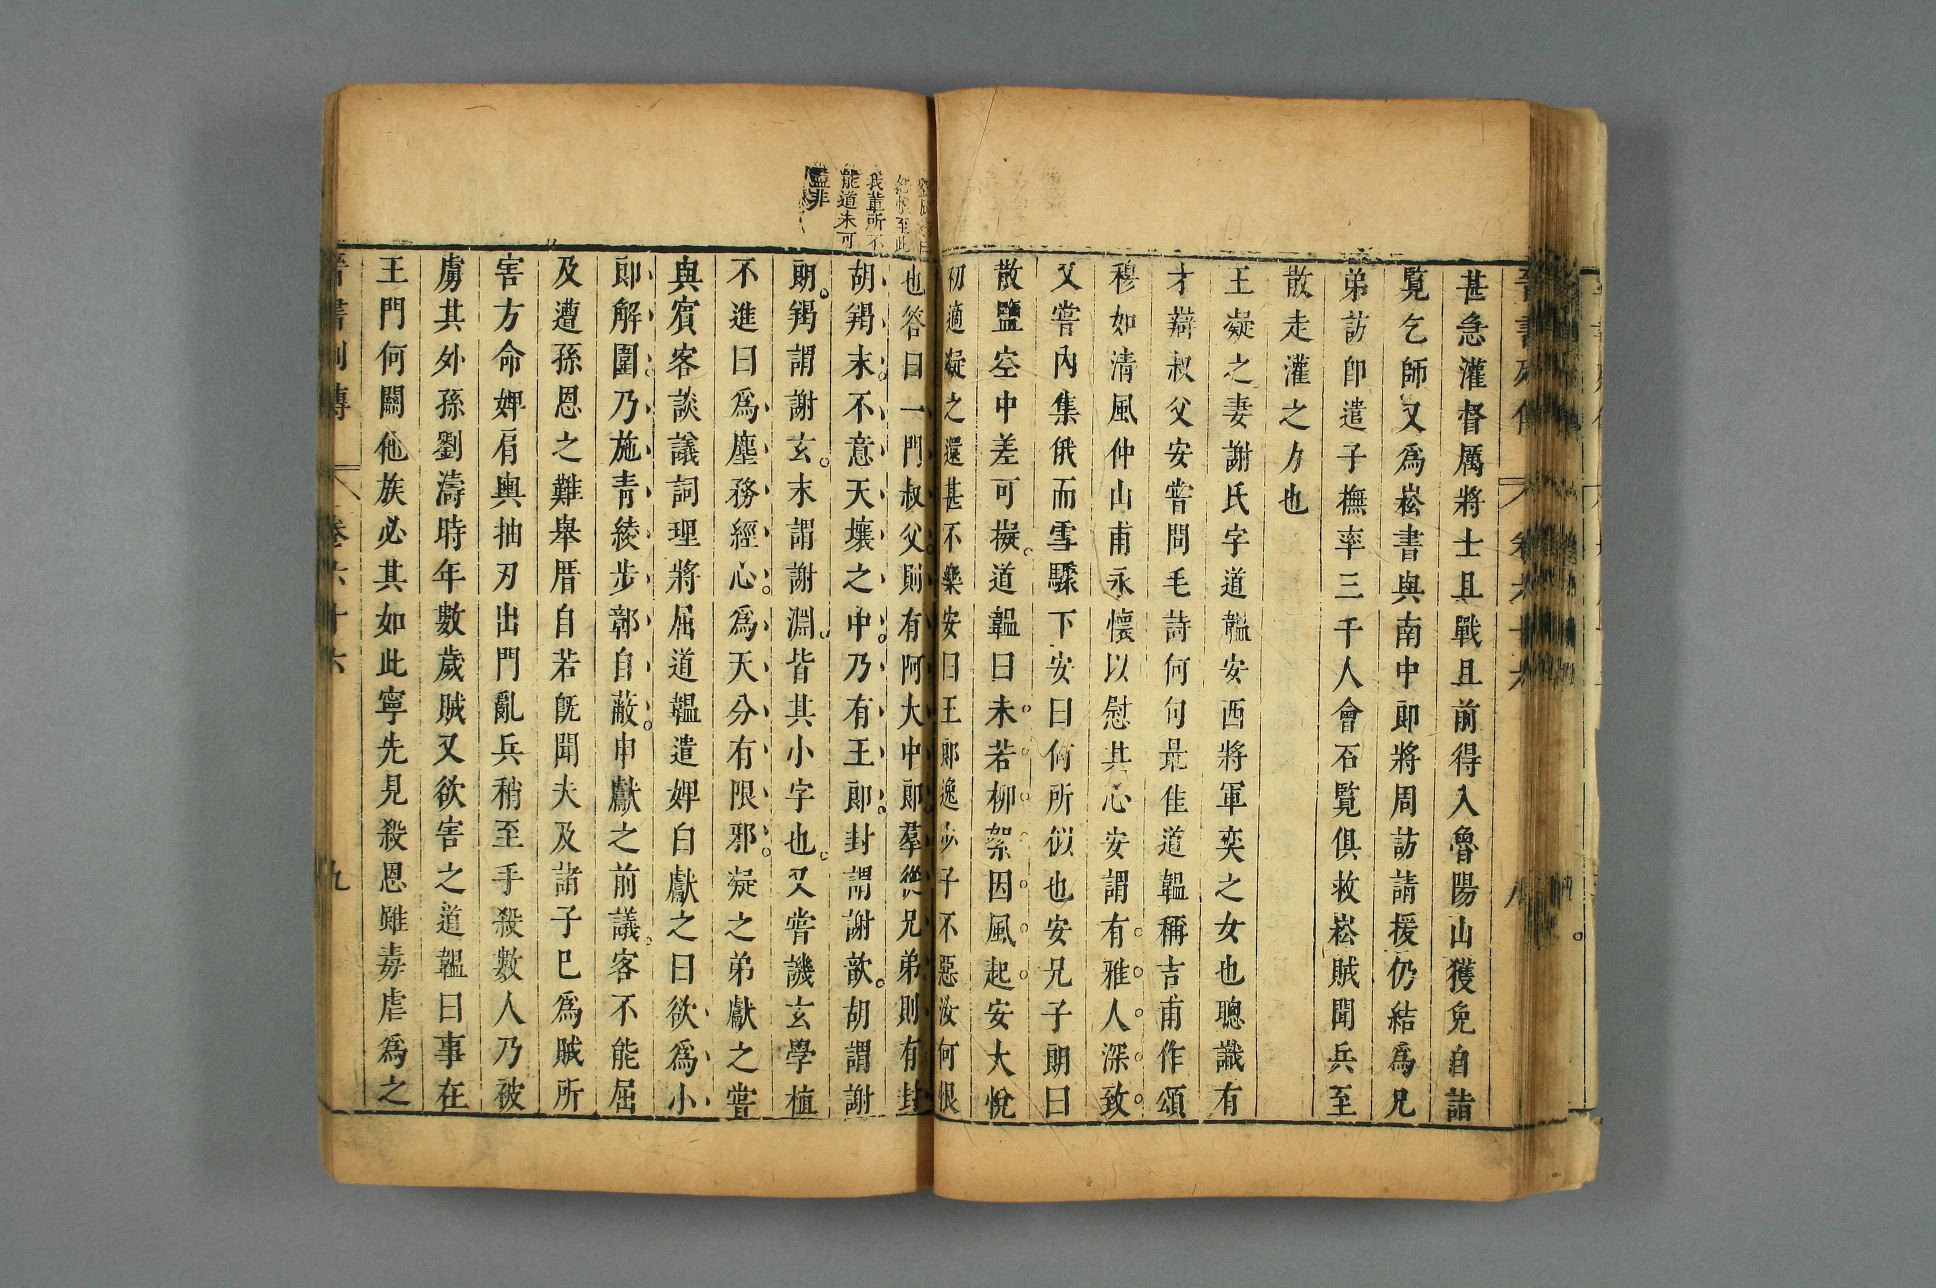 晉書列傳 卷六十六 八
甚急灌督厲將士且戰且前得入魯陽山獲免自詣
覽乞師又爲崧書與南中郎將周訪請援仍結爲兄
弟訪卽遣子撫率三千人會石覽俱救崧賊聞兵至
散走灌之力也
王凝之妻謝氏字道韞安西將軍奕之女也聰識有
才辯叔父安嘗問毛詩何句最佳道韞稱吉甫作頌
穆如清風仲山甫永懷以慰其心安謂有雅人深致
又嘗內集俄而雪驟下安曰何所似也安兄子朗曰
散鹽空中差可擬道韞曰未若柳絮因風起安大悅
初適凝之還甚不樂安曰王郎逸少子不惡汝何恨
也答曰一門叔父則有阿大中郎羣從兄弟則有封
胡羯末不意天壤之中乃有王郎封謂謝歆胡謂謝
朗羯謂謝玄末謂謝淵皆其小字也又嘗譏玄學植
不進曰爲塵務經心爲天分有限邪凝之弟獻之嘗
與賓客談議詞理將屈道韞遣婢白獻之曰欲爲小
郎解圍乃施青綾步鄣自蔽申獻之前議客不能屈
及遭孫恩之難舉厝自若旣聞夫及諸子已爲賊所
害方命婢肩輿抽刃出門亂兵稍至手殺數人乃被
虜其外孫劉濤時年數歲賊又欲害之道韞曰事在
王門何關他族必其如此寧先見殺恩雖毒虐爲之
晉書列傳 卷六十六 九
至此
我輩所不
能道未可
非